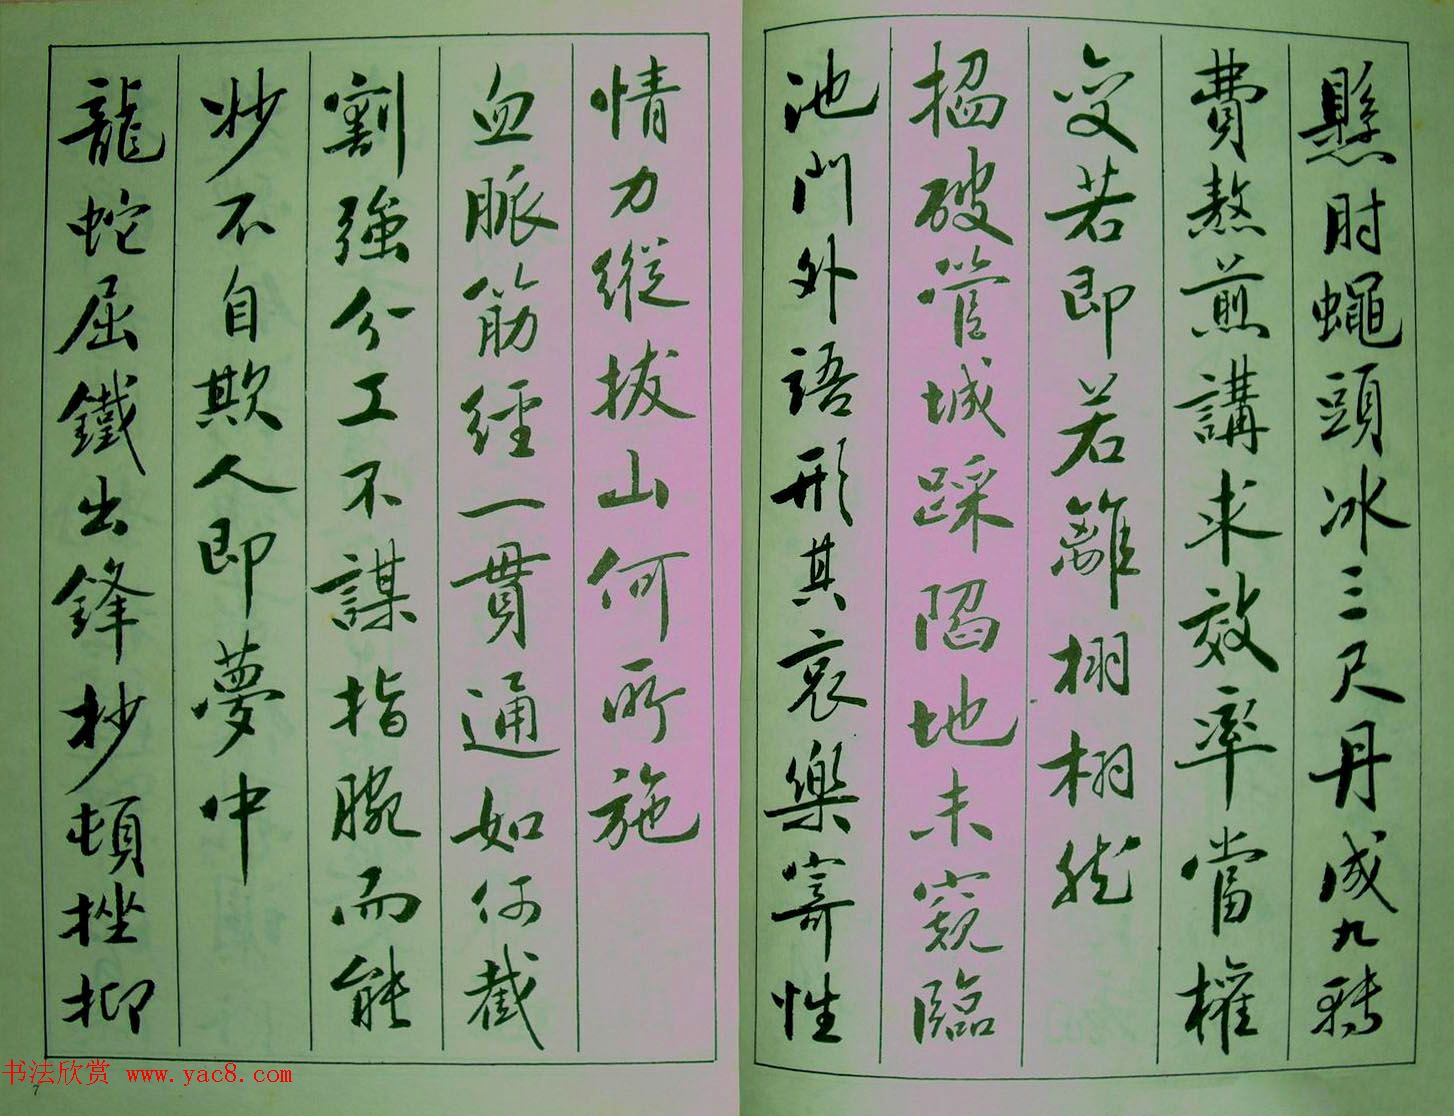 懸肘蠅頭冰三尺丹成九轉
費熬煎講求效率當權
变若即若離栩栩然
搨破管城踩陷地未窺臨
池門外語形其哀樂寄性
情力縱拔山何所施
血脈筋經一貫通如何截
割強分工不謀指腕而能
妙不自欺人即夢中
龍蛇屈鐵出鋒抄頓挫抑
书法欣赏 www.yac8.com
7